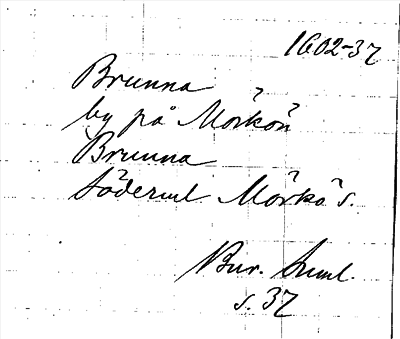 1602-37
Brunna
by på Mörkön
Brunna
Söderml Mörkö s.
Bur. Suml.
s. 37